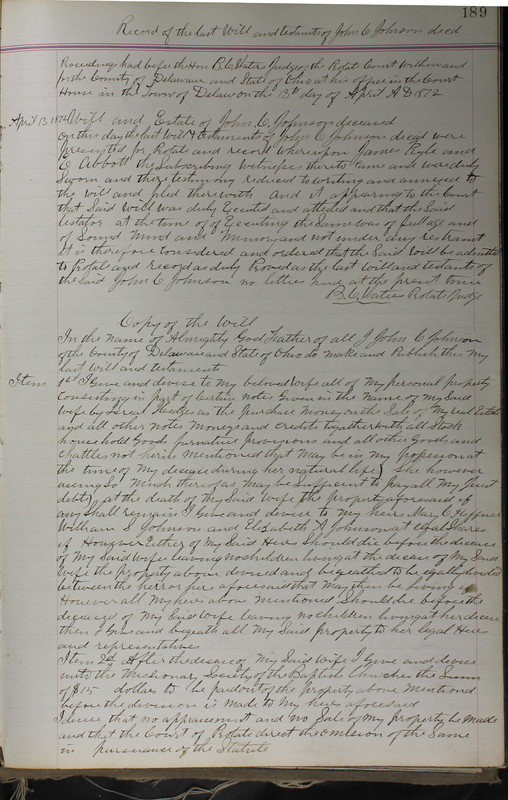 189
Record of the last Will and testaments of John C Johnson decd
Proceedings had before the Hon B. C. Waters Judge of the Probat Court Within and
for the County of Delaware and State of Ohio at his office in the Court
House in the Town of Delaw on the 13th day of April A D 1872
April 13 1872 Will and Estate of John C. Johnson deceased
On this day the last Will & testaments of John C Johnson decead were
presented for Probat and record whereupon James Pyle and
C Abbott the Subscribing Witnesses thereto came and were duly
Sworn and their testimony reduced to writing and annexed to
the will and filed therewith And it appearing to the Court
that Said Will was duly Executed and attested and that the Said
testator at the time of Executing the Same was of full age and
of Sound Mind and Memory and not under any restraint
It is therefore considered and ordered that the Said Will be admitted
to Probat and record as duly Proved as the last will and testants of
the Said John C Johnson no letters at the present time
B. C. Waters Probate Judge
Copy of the Will
In the name of Almighty God Father of all I John C Johnson
of the County of Delaware and State of Ohio do make and Publish this My
last Will and testaments
Item 1st I Give and devise to My beloved Wife all of My personal property
consisting in part of Certain notes Given in the Name of My Said
Wife by Hodges as the purchase Money on the Sale of My real Estate
and all other Notes Moneys and Credits together with all Stock
household Goods furnature provisions and all other Goods and
Chattles not herin Mentioned that May be in My possession at
the time of My decease during her natural life) She however
using So Much thereof as may be Sufficient to pay all My Just
debts) at the death of My Said Wife the property aforesaid if
any Shall remain I Give and devise to My heirs Mary C Heffner
William S Johnson and Elizabeth A Johnson at equal Shares
if However Either of My Said Heirs Should die before the decease
of My Said Wife leaving no children living at the decease of My Said
Wife the property above devised and bequeathed to be eqally divided
between the heir or heirs aforesaid that May then be living if
However all My heirs above Mentioned Should die before the
decease of My Said Wife leaving no children living at her decease
then I Give and begeath all My Said property to her legal Heirs
and representatives
Item 2d After the decease of My Said Wife I Give and devise
unto the Missionary Society of the Baptist Church the Sum
of $15 dollars to be paid out of the property above Mentiond
before the division is Made to My heirs aforesaid
I desire that no appraisement and no Sale of My property be Made
and that the Court of Probate direct the omission of the Same
in pursuance of the Statute